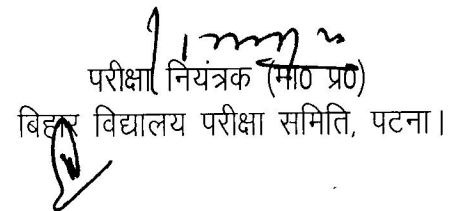 परीक्षा नियंत्रक (मा0 प्र0)
बिहार विद्यालय परीक्षा समिति, पटना।